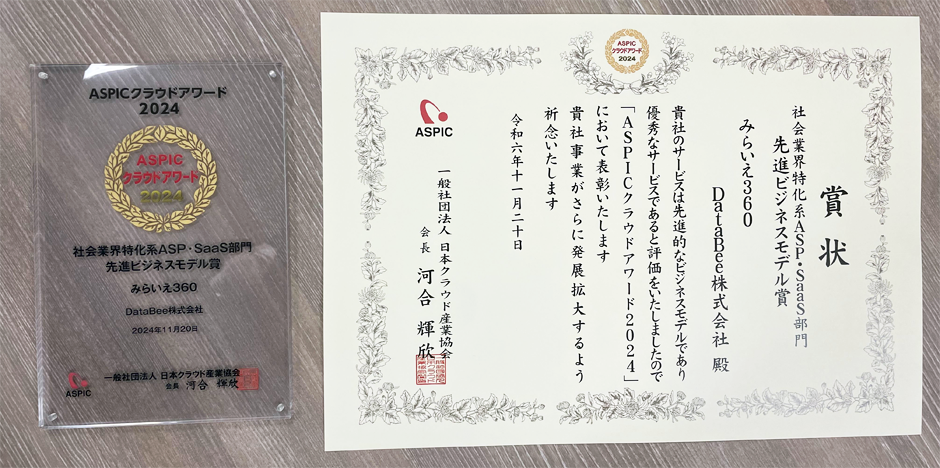 ASPICクラウドアワード
2024
ASPIC
クラウドアワード
2024
社会業界特化系ASP・SaaS部門
先進ビジネスモデル賞
みらいえ360
DataBee株式会社
2024年11月20日
一般社団法人 日本クラウド産業協会
会長 河合 輝欣
ASPIC
ASPIC
クラウドアワード
2024
賞状
社会業界特化系ASP・SaaS部門
先進ビジネスモデル賞
みらいえ360
DataBee株式会社 殿
貴社のサービスは先進的なビジネスモデルであり
優秀なサービスであると評価をいたしましたので
「ASPICクラウドアワード2024」
において表彰いたします
貴社事業がさらに発展拡大するよう
祈念いたします
令和六年十一月二十日
ASPIC
一般社団法人 日本クラウド産業協会
会長 河合 輝欣